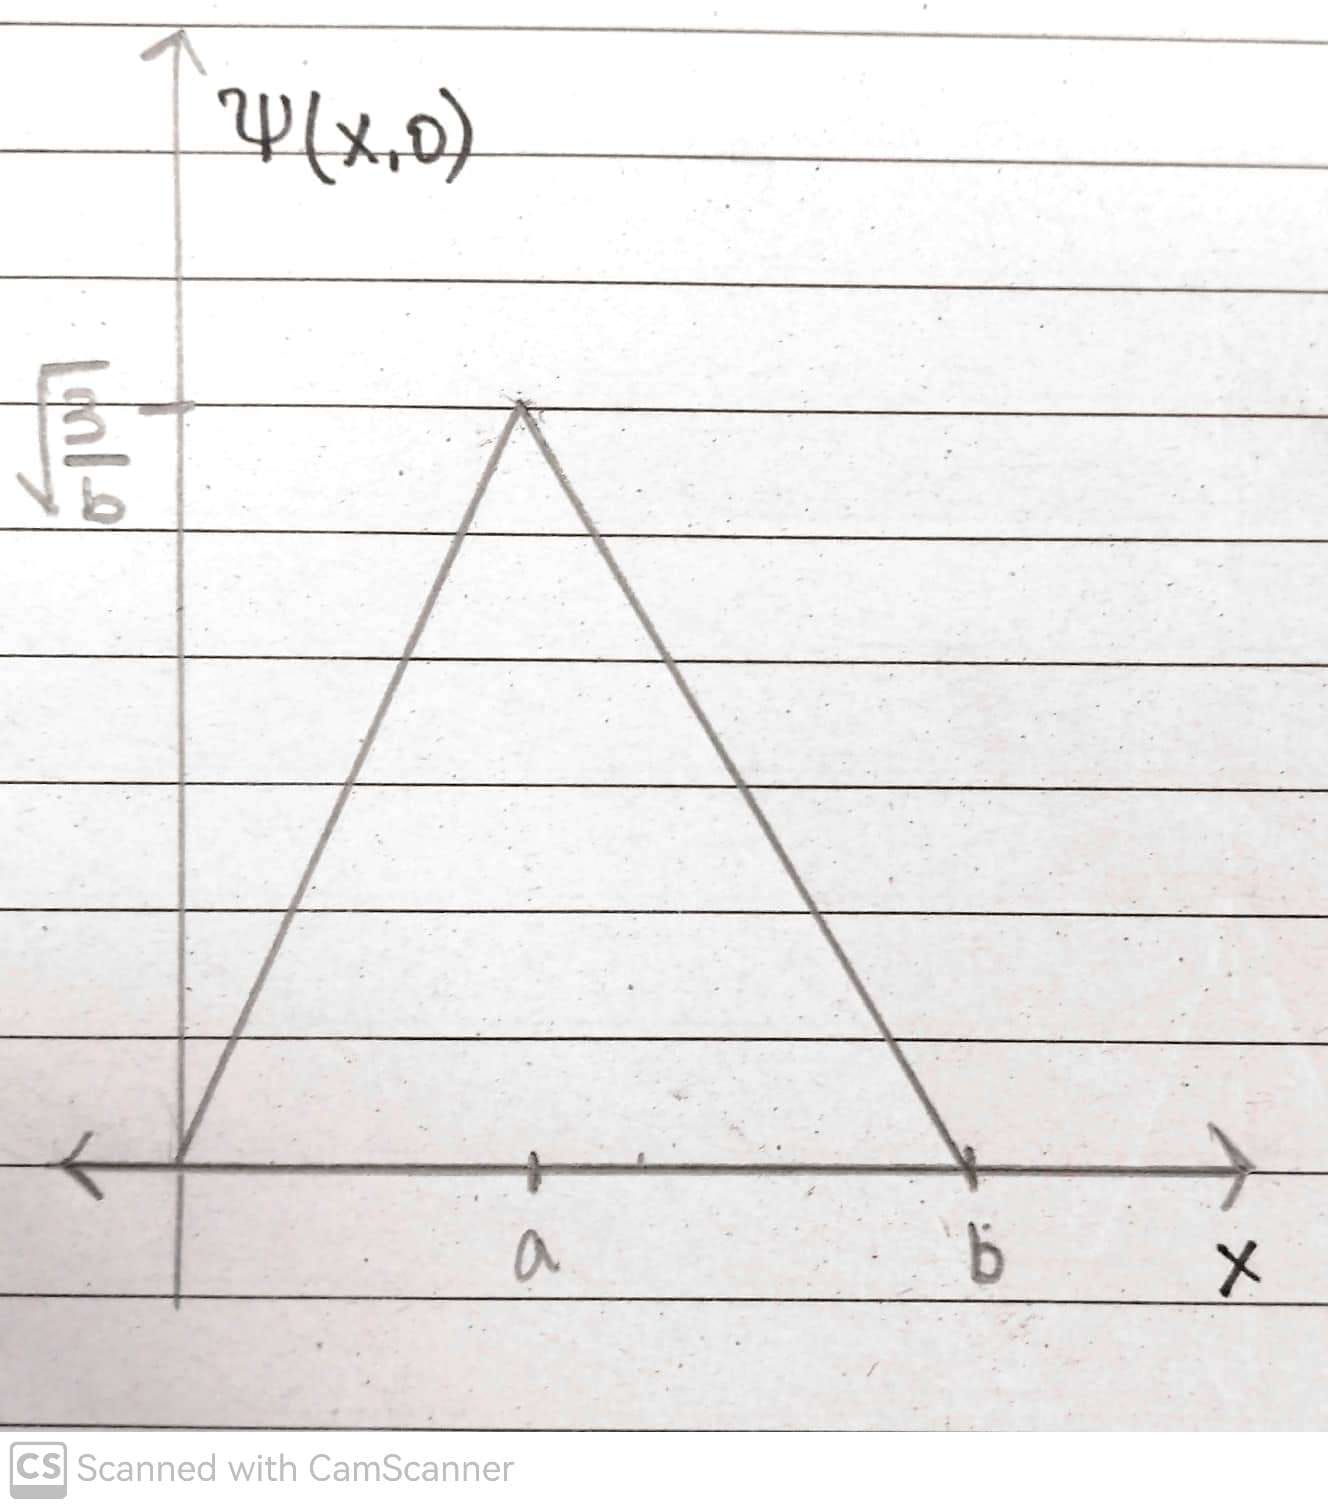 Ψ(x,0)
√3/b
a
b
x
CS Scanned with CamScanner